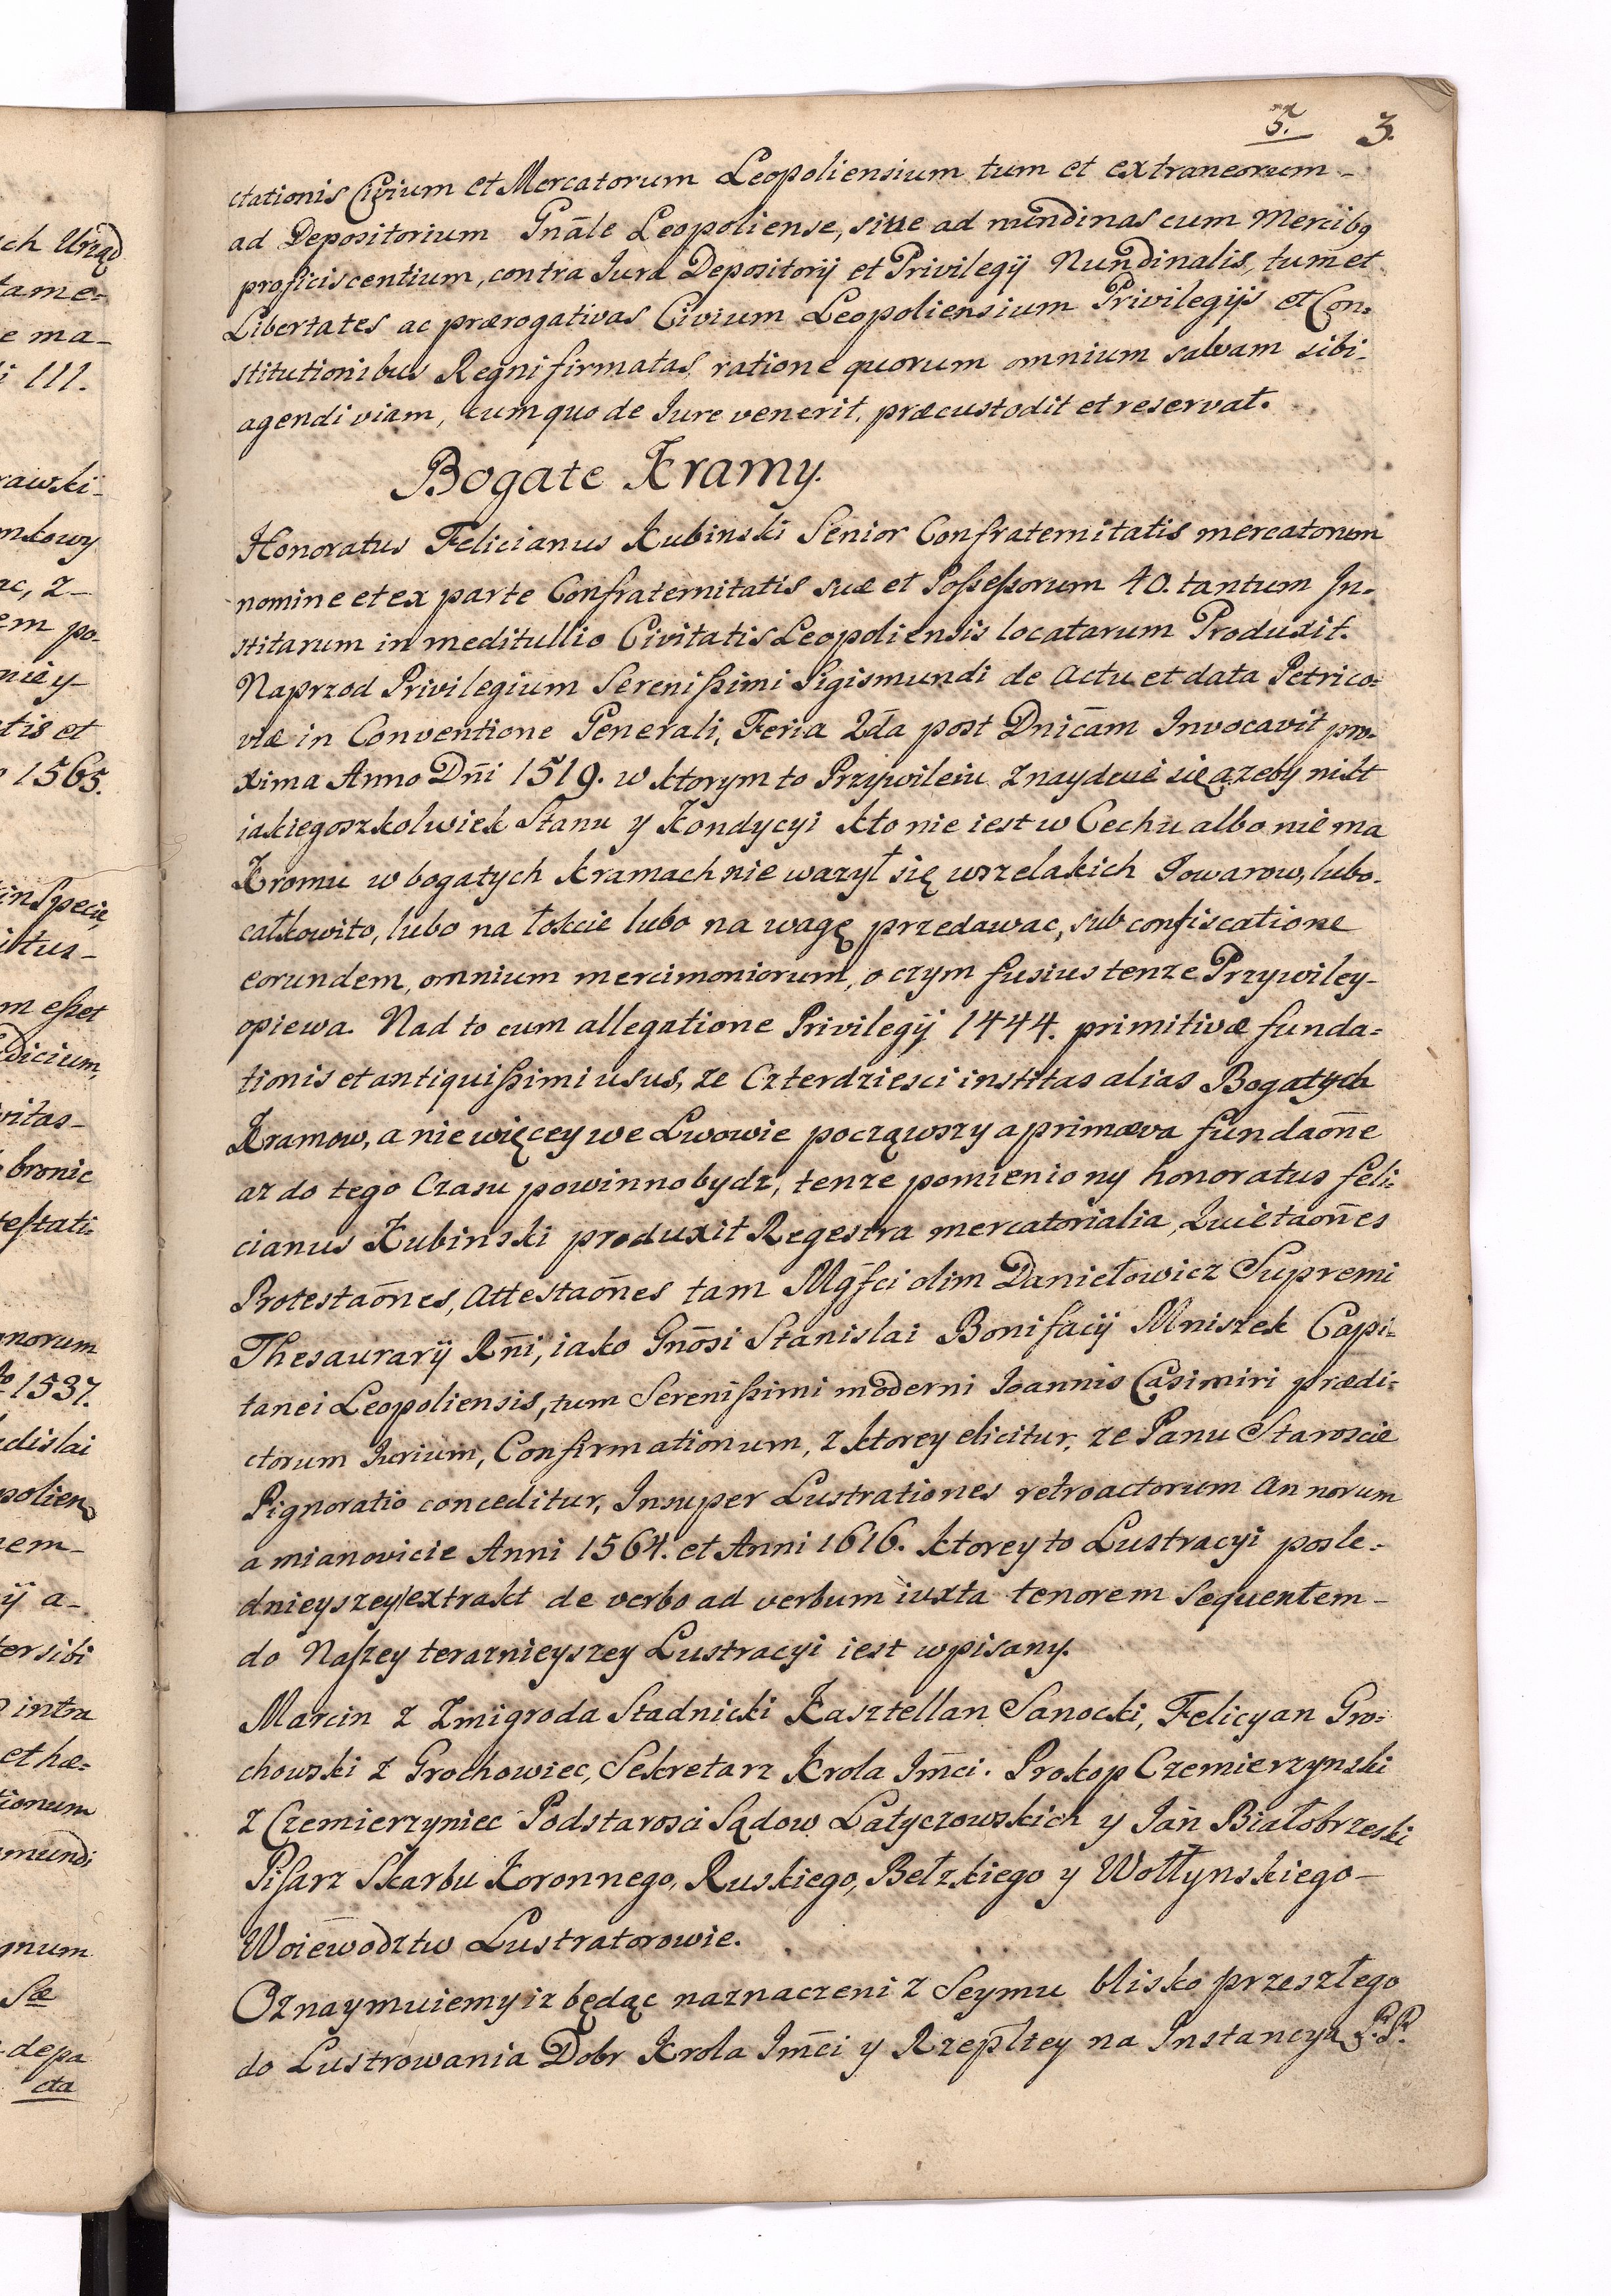 5. 3.
ctationis Civium et Mercatorum Leopoliensium tum et extraneorum -
ad Depositorium Gnāle Leopoliense, sive ad nundinas cum Mercibq
proficiscentium, contra Iura Depositorij et Privilegij Nundinalis, tum et
Libertates ac prærogativas Civium Leopoliensium Privilegijs et Con=
stitutionibus Regni firmatas, ratione quorum omnium salvam sibi
agendi viam, cum quo de Iure venerit, præcustodit et reservat.
Bogate Kramy.
Honoratus Felicianus Kubinski Senior Confraternitatis mercatorum
nomine et ex parte Confraternitatis suæ et Poſseſsorum 40. tantum In=
stitarum in meditullio Civitatis Leopoliensis locatarum Produxit.
Naprzod Privilegium Sereniſsimi Sigismundi de Actu et data Petrico=
viæ in Conventione Generali, Feria 2da post Dnicām Invocavit pro=
xima Anno Dn̄i 1519. w ktorym to Przywileiu znayduie się azeby nikt
iakiegoszkolwiek Stanu y Kondycyi kto nie iest w Cechu albo nie ma
Kromu w bogatych kramach nie wazył się wszelakich Towarow, lubo
całkowito, lubo na łokcie lubo na wagę przedawac, sub confiscatione
eorundem, omnium mercimoniorum, o czym fusius tenze Przywiley -
opiewa. Nad to cum allegatione Privilegij 1444. primitivæ funda=
tionis et antiquiſsimi usus, ze Czterdziesci institas alias Bogatych
Kramow, a nie więcey we Lwowie począwszy a primæva fundaōne
az do tego Czasu powinno bydz, tenze pomieniony honoratus feli=
cianus Kubinski produxit Regestra mercatorialia, Quietaōnes
Protestaōnes, Attestaōnes tam Mḡfci olim Daniełowicz Supremi
Thesaurarij Rn̄i, iako Gnōsi Stanislai Bonifacij Mniszek Capi=
tanei Leopoliensis, tum Sereniſsimi moderni Ioannis Casimiri prædi=
ctorum Iurium, Confirmationum, z ktorey elicitur, ze Panu Staroscie
Pignoratio conceditur, Insuper Lustrationes retroactorum Annorum
a mianovicie Anni 1564. et Anni 1616. ktorey to Lustracyi posle=
dnieyszey extrakt de verbo ad verbum iuxta tenorem sequentem -
do Naſzey teraznieyszey Lustracyi iest wpisany.
Marcin z Zmigroda Stadnicki Kasztellan Sanocki, Felicyan Gro=
chowski z Grochowiec, Sekretarz Krola Jm̄ci. Prokop Czemierzynski
z Czemierzyniec Podstarosci Sądow Latyczowskich y Jan Białobrzeski
Piſarz Skarbu Koronnego, Ruskiego, Bełzkiego y Wołłynskiego -
Woiewodztw Lustratorowie.
Oznaymuiemy iz będąc naznaczeni z Seymu blisko przeszłego
do Lustrowania Dobr Krola Jm̄ci y Rzepltey na Instancyą P.P.